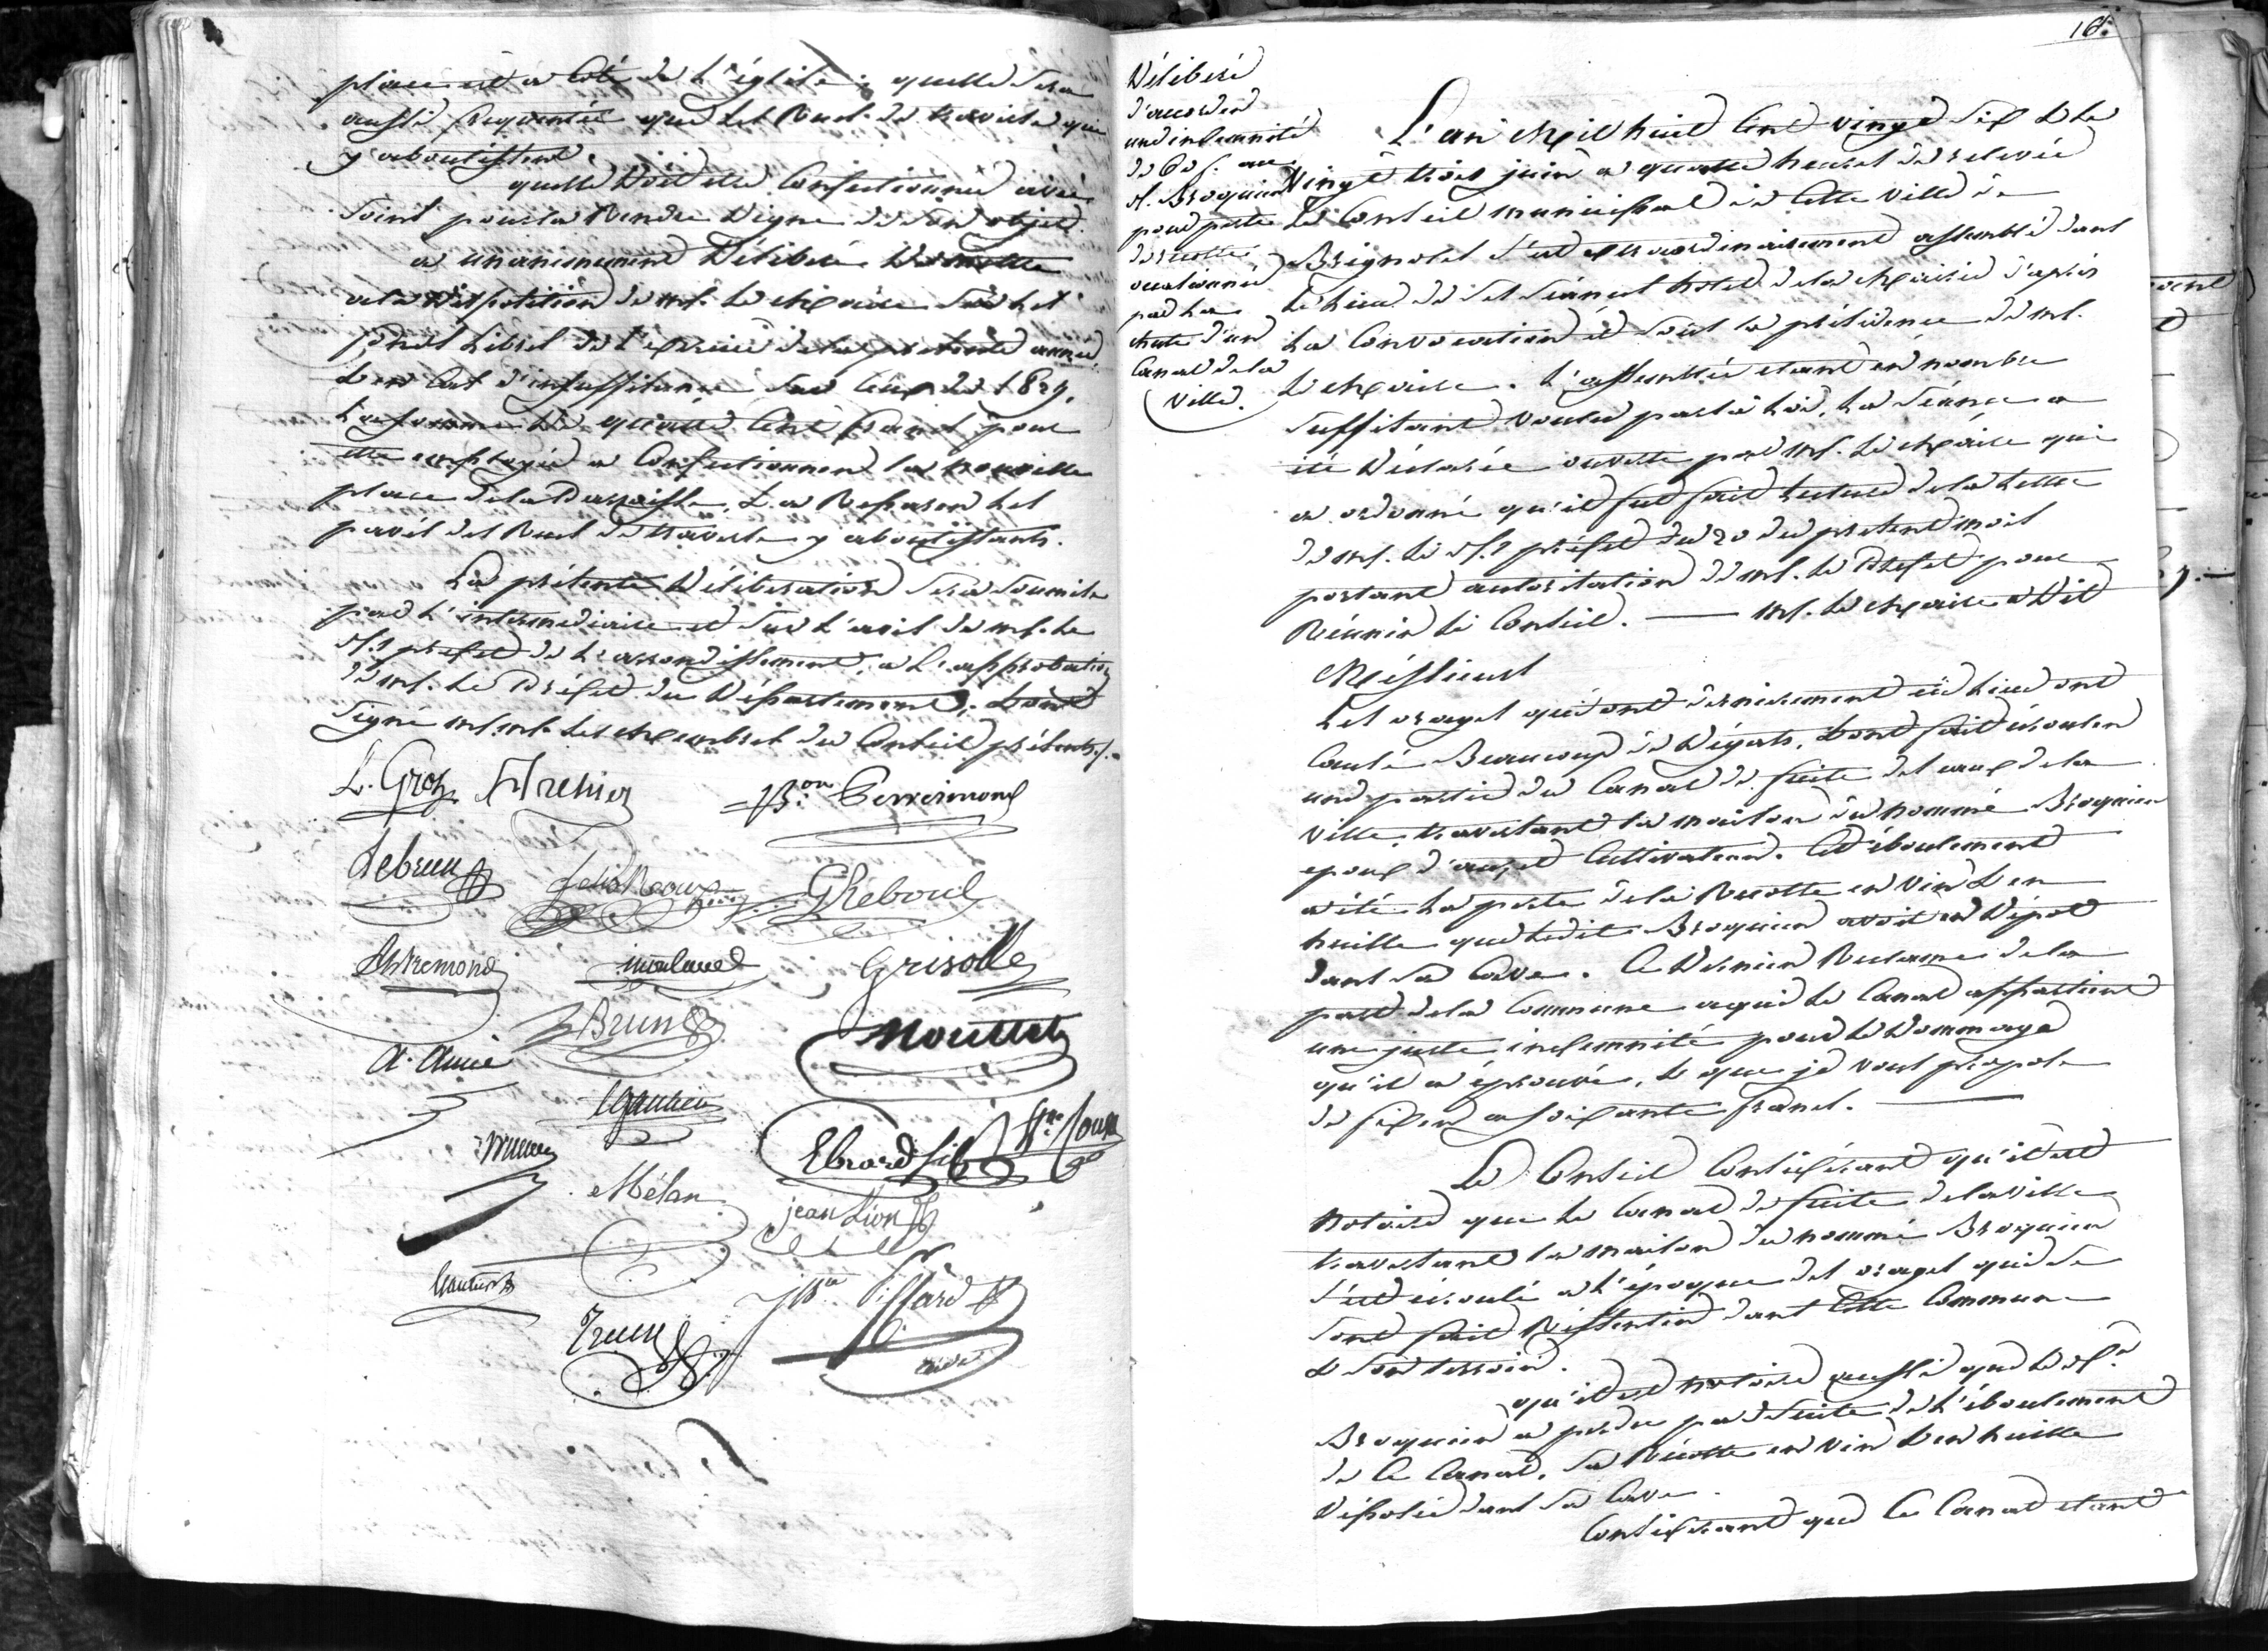 place est a Coté de L'église; quelle sera
aussi frequentée que Les Rues de traverse qui
y aboutissent.
quelle doit etre Confectionnée avec
Soint pour la Rendre Digne de son objet.
a unanimement Déliberé de mettre
a la Disposition de mr. Le Maire sur Les
fonds Libres de L'exercice de la presente année,
& en Cas d'insuffisance sur Ceux de 1829,
La somme de quatre Cent francs pour
etre employée a Confectionner la nouvelle
place de la Parroisse, & a Reparer Les
pavés des Rues de traverse y aboutissants.
La présente Déliberation sera soumise
par L'intermediaire et sur L'avis de mr. Le
s.s prefet de L'arrondissement, a L'approbation
de mr. Le Préfet du Département; & ont
Signé mr.mr. Les Membres du Conseil présents
L. Gros
Bon Perrimond
Lebrun
GReboul
Grisolle
Brun
Mouttet
A. Amic
Ebrard fils
Mélan
jean Lion
Piffard
16
Déliberé
d'accorder
une indemnité
de 60 f. au
s. Broquier
pour perte
de recolte
occasionnée
par La
chute d'un
Canal de la
Ville.
L'an Mil huit Cent vingt six & Le
Vingt trois juin a quatre heures de relevée
Le Conseil municipal de Cette Ville de
Brignoles s'est extraordinairement assemblé dans
Le Lieu de ses séances hotel de la Mairie d'après
La Convocation et sous la présidence de mr.
Le Maire. L'assemblée etant en nombre
suffisant voulu par la Loi, La séance a
été Déclarée ouverte par mr. Le Maire qui
a ordonné qu'il fut fait Lecture de la Lettre
de mr. Le s.s préfet du 20 du present mois
portant autorisation de mr. Le Prefet pour
Réunir Le Conseil. — mr. Le Maire a Dit
Messieurs
Les orages qui ont dernierement eü Lieu ont
Causé Beaucoup de Dégats, & ont fait écrouler
une partie du Canal de fuite des eaux de la
Ville, traversant la maison du nommé Broquier
epoux Cultivateur. Cet éboulement
a été La perte de la Recolte en vin & en
huille que Ledit Broquier avoit en Dépot
dans sa Cave. Ce Dernier Reclame de la
part de la Commune a qui Le Canal appartient
une juste indemnité pour Le Dommage
qu'il a éprouvé, & que je vous propose
de fixer a soixante francs. —
Le Conseil Considérant qu'il est
Notoire que Le Canal de fuite de la Ville
traversant la maison du nommé Broquier
s'est écroulé a L'époque des orages qui se
sont fait Ressentir dans Cette Commune
& son terroir.
qu'il est notoire aussi que Le sr
Broquier a perdu par suite de L'éboulement
de Ce Canal, sa Récolte en vin & en huille
Déposée dans sa Cave.
Considérant que Ce Canal etant